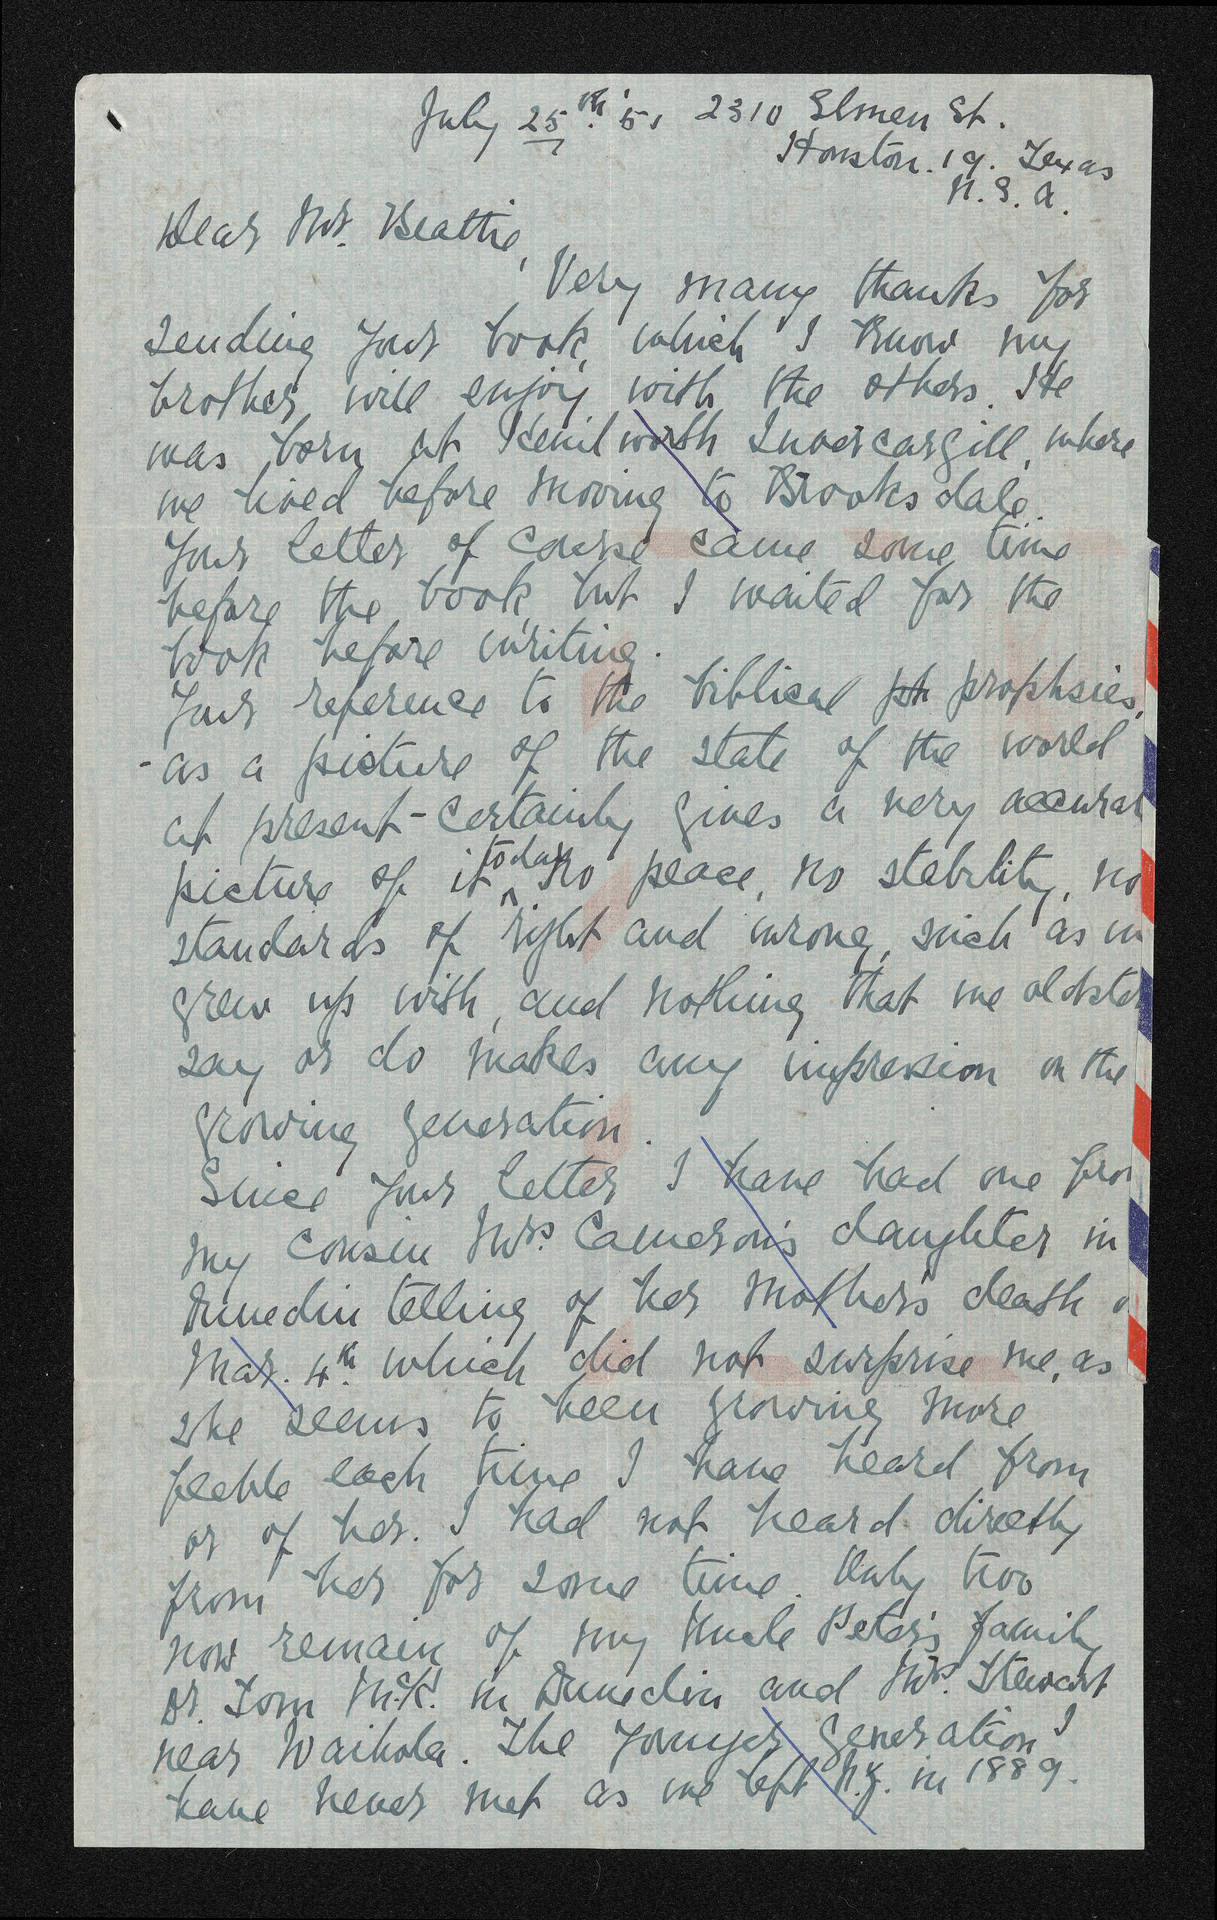 July 25th. '51 2310 Elmen St.
Houston. 19. Texas
U. S. A.
Dear Mr. Beattie,
Very many thanks for
sending your book, which I know my
brother, will enjoy with the others. He
was born at Kenilworth Invercargill, where
we lived before moving to Brooksdale.
Your letter of course came some time
before the book, but I waited for the
book before writing.
Your reference to the biblical ph prophsies,
-as a picture of the state of the world
at present - certainly gives a very accurat
picture of it today no peace, no stability, no
standards of right and wrong, such as w
grew up with, and nothing that we oldster
say or do makes any impression on the
growing generation.
Since your letter I have had one from
my cousin Mrs. Cameron's daughter in
Dunedin telling of her Mother's death o
Mar. 4th. which did not surprise me, as
she seems to been growing more
feeble each time I have heard from
or of her. I had not heard directly
from her for some time. Only two
now remain of my Uncle Peter's family
Dr. Tom McK. in Dunedin and Mrs. Stewart
near Waihola. The younger generation I
have never met as we left N.Z. in 1889.